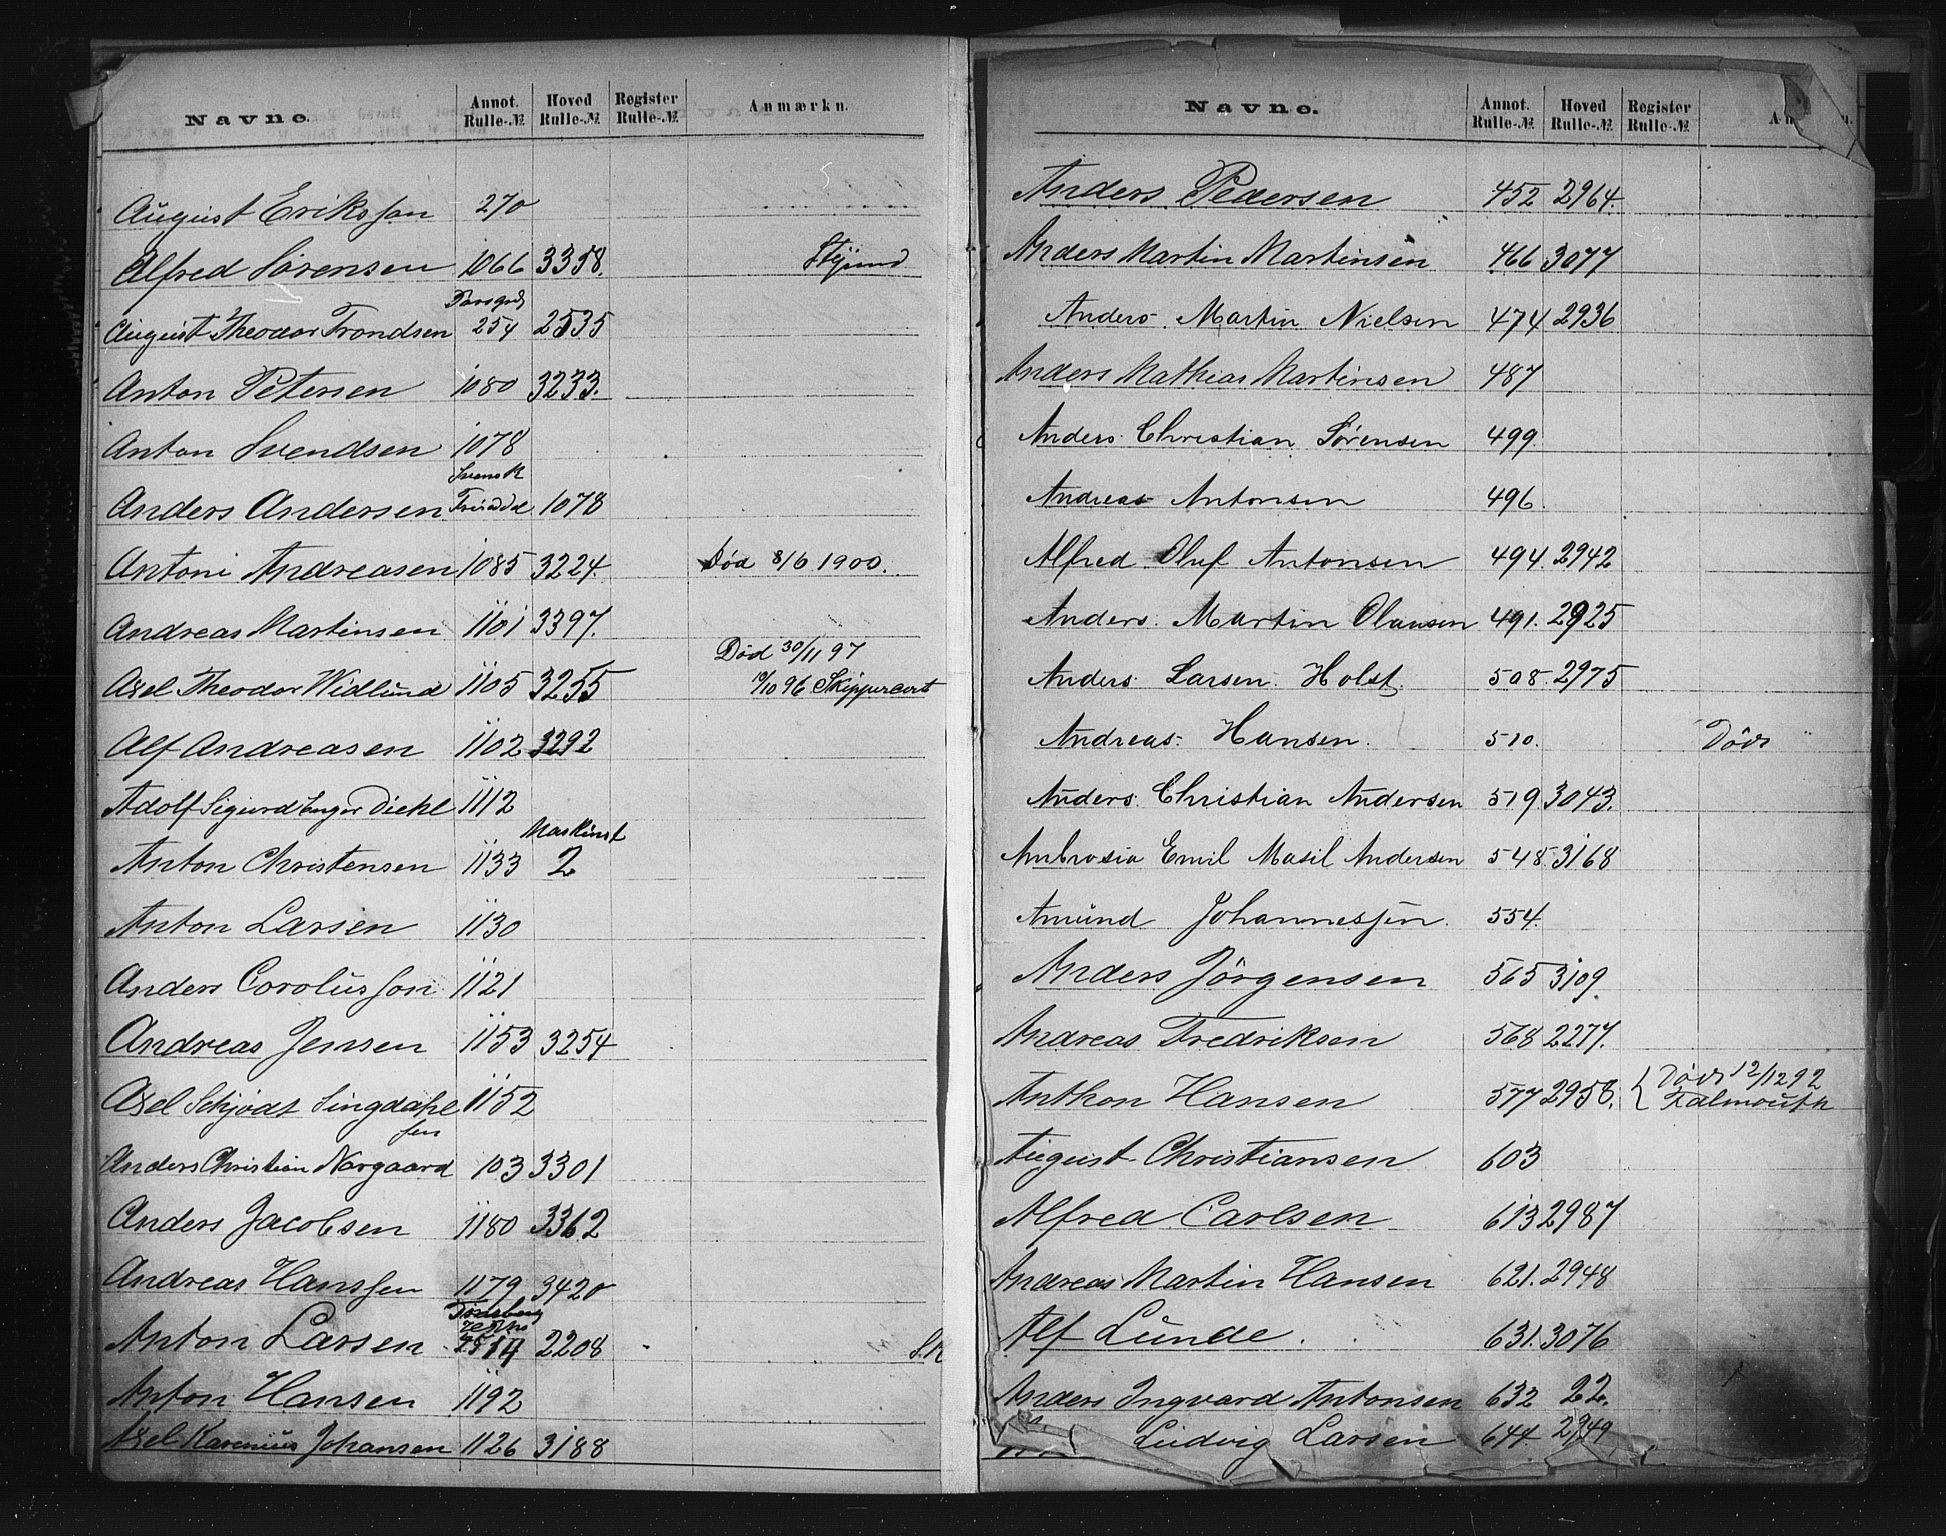 Navne Annot. Rulle-№ Hoved Rulle-№ Register Rulle-№ Anmærkn.
August Eriksson 270
Alfred Sørensen 1066 3358.
August Theodor Trondsen 254 2535
Anton Petersen 1080 3233.
Anton Svendsen 1078
Svensk
Anders Andersen 1078
Antoni Andreasen 1085 3224. Død 8/6 1900.
Andreas Martinsen 1101 3397.
Død 30/11 97
Axel Theodor Widlund 1105 3255 10/10 96 Skippercert
Alf Andreasen 1102 3292
Adolf Sigurd Enger Diehl 1112
Maskinist
Anton Christensen 1133 2
Anton Larsen 1130
Anders Carolusson 1121
Andreas Jensen 1153 3254
Axel Schjødt Lingdahl 1152
sen
Anders Christian Norgaard 103 3301
Anders Jacobsen 1180 3362
Andreas Hanssen 1179 3420
Tønsberg
Anton Larsen 2514 2208
Anton Hansen 1192
Axel Karenius Johansen 1126 3188
Navne. Annot. Rulle-№ Hoved Rulle-№ Register Rulle-№
Anders Pedersen 452 2964.
Anders Martin Martinsen 466 3077
Anders Martin Nielsen 474 2936
Anders Mathias Martinsen 487
Anders Christian Sørensen 499.
Andreas Antonsen 496.
Alfred Oluf Antonsen 494. 2942
Anders Martin Olausen 491. 2925
Anders Larsen Holst. 508. 2975
Andreas Hansen. 510. Død
Anders Christian Andersen 519 3043.
Ambrosia Emil Masil Andersen 548 3168
Amund Johannessen. 554.
Anders Jörgensen 565 3109.
Andreas Fredriksen 568 2277.
Anthon Hansen 577 2958. { Død 12/12 92
Falmouth
August Christiansen 603
Alfred Carlsen 613 2987
Andreas Martin Hansen 621. 2948
Alf Lunde. 631. 3076
Anders Ingvard Antonsen 632 22.
Ludvig Larsen 644. 2949